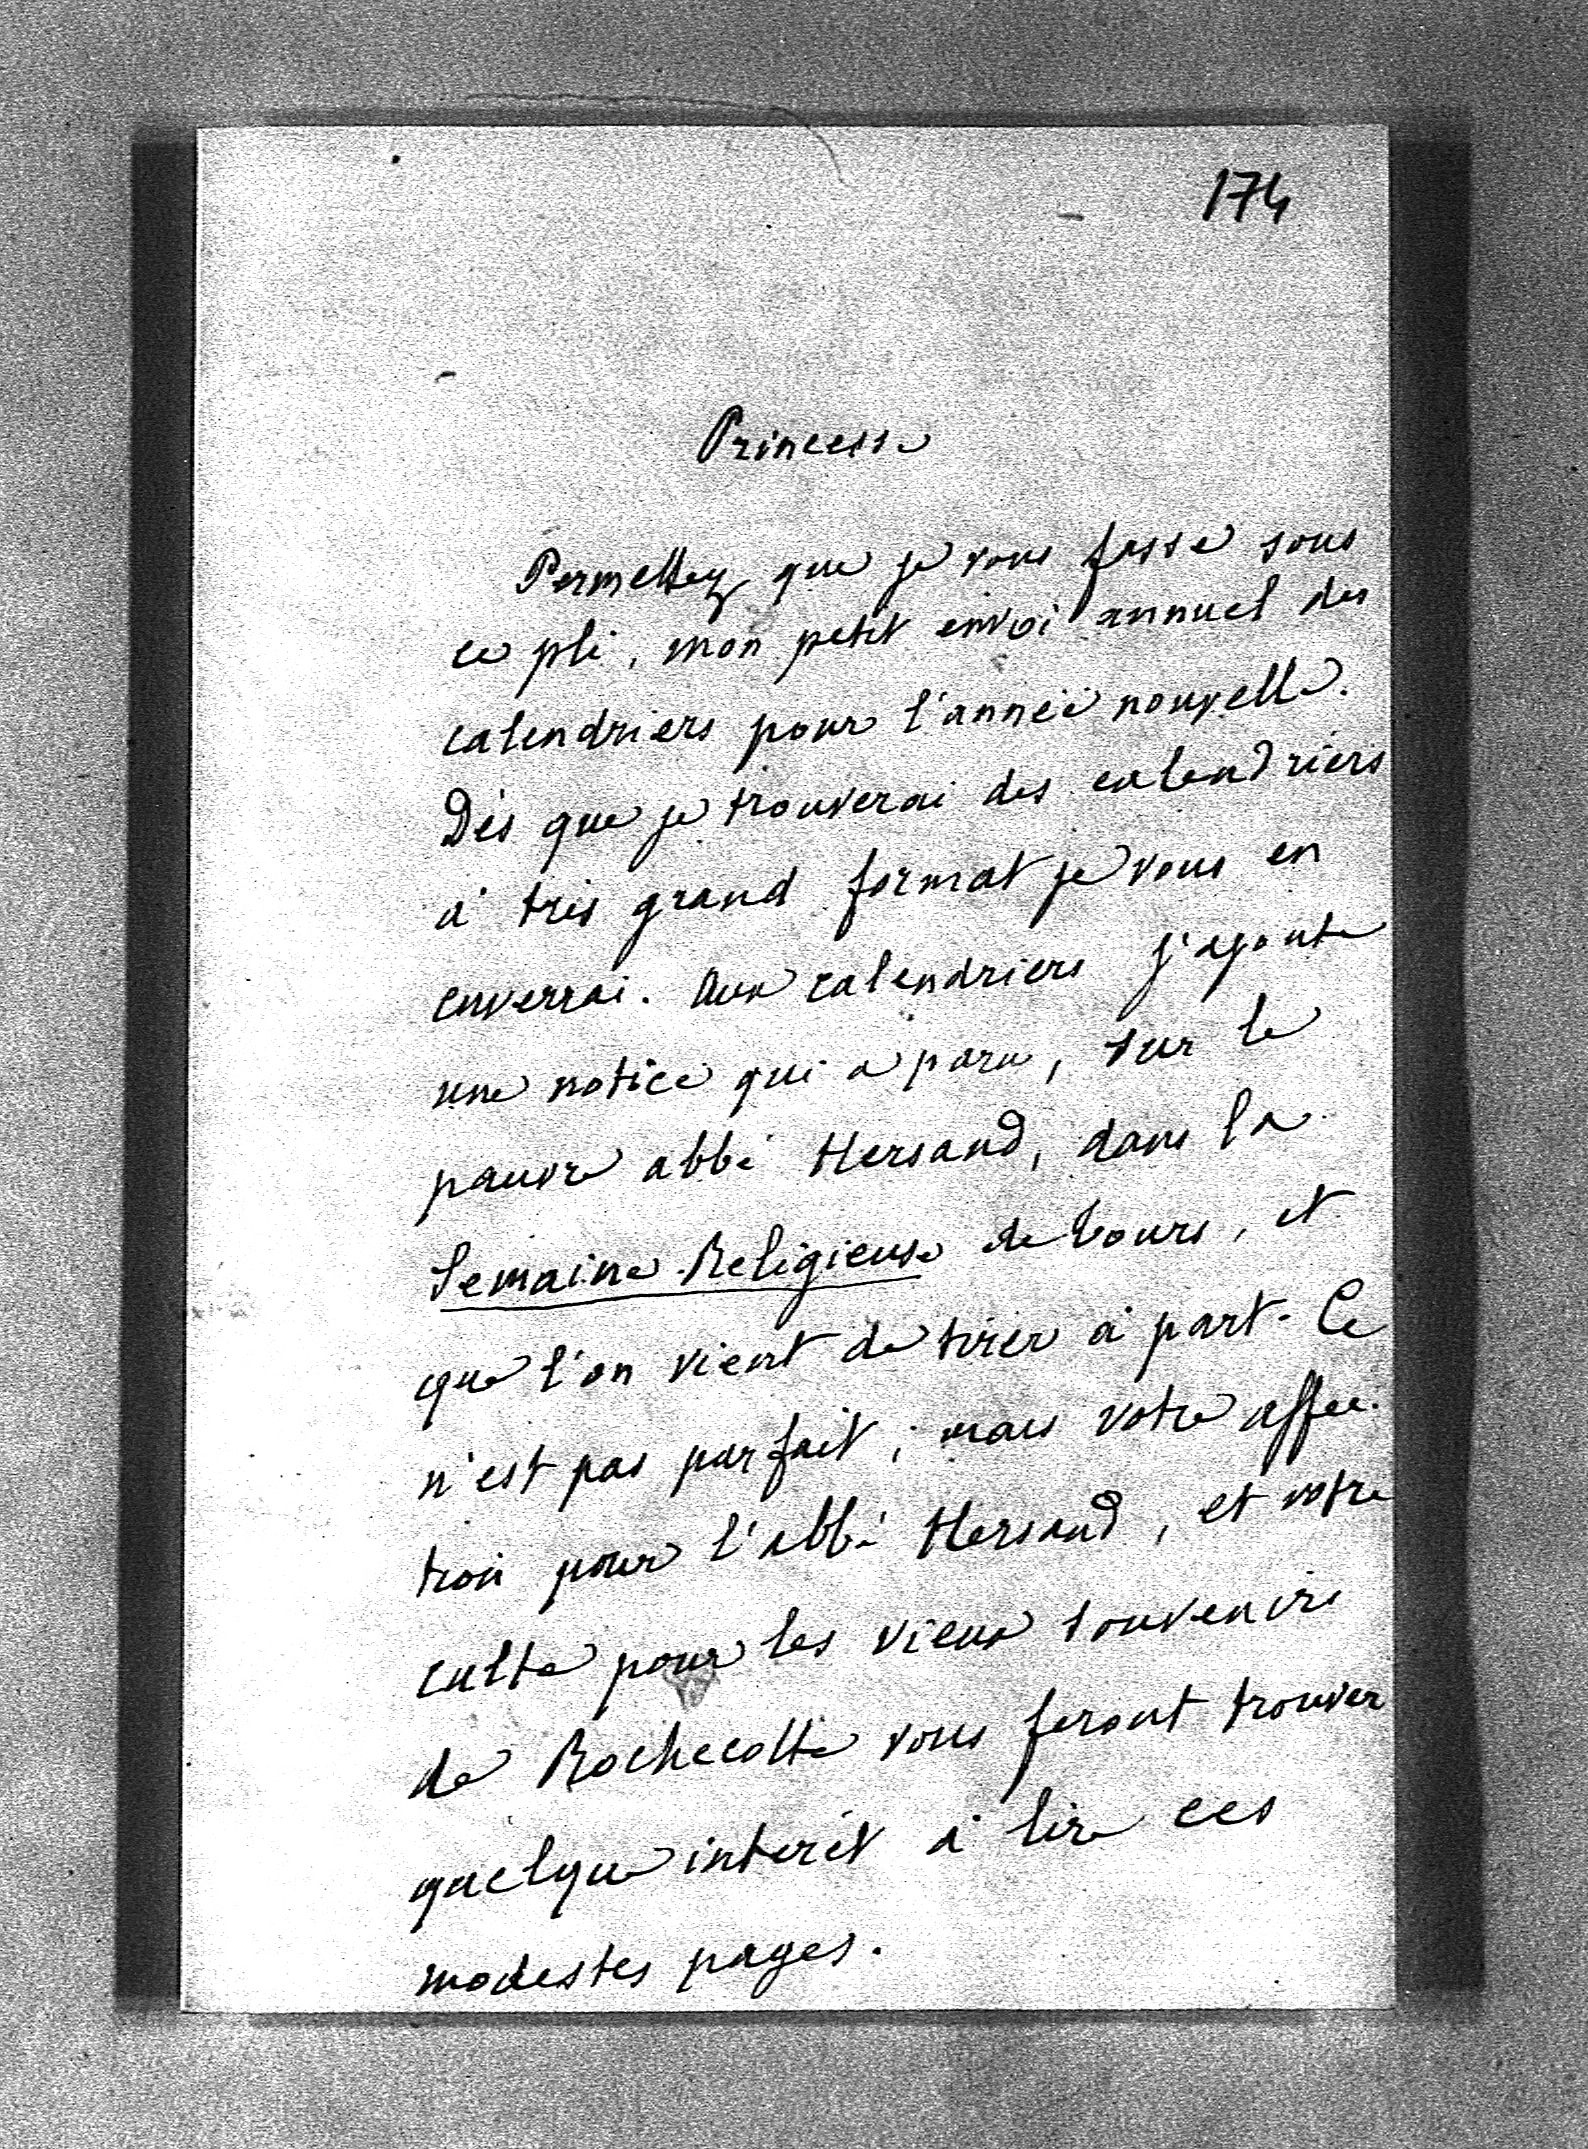 174
Princesse
Permettez que je vous fasse sous
ce pli, mon petit envoi annuel des
calendriers pour l'année nouvelle.
Dès que je trouverai des calendriers
à très grand format je vous en
enverrai. Aux calendriers j'ajoute
une notice qui a paru, sur le
pauvre abbé Hersand, dans la
Semaine Religieuse de Tours, et
que l'on vient de tirer à part. Ce
n'est pas parfait; mais votre affec-
tion pour l'abbé Hersand, et votre
culte pour les vieux souvenirs
de Rochecotte vous feront trouver
quelque intérêt à lire ces
modestes pages.